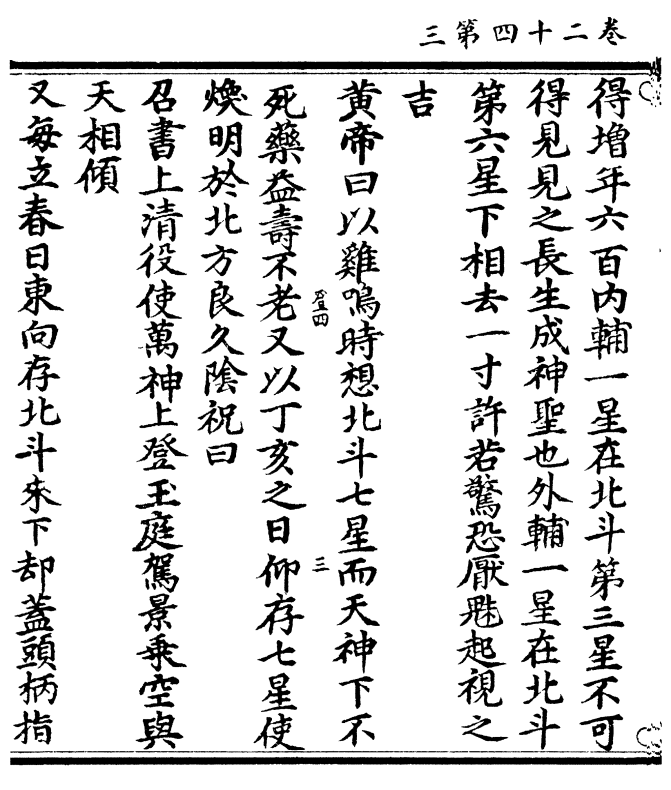 卷二十四第三
得增年六百内輔一星在北斗第三星不可
得見見之長生成神聖也外輔一星在北斗
第六星下相去一寸許若驚恐厭魅起視之
吉
黄帝曰以雞鳴時想北斗七星而天神下不
登四
三
死藥益壽不老又以丁亥之日仰存七星使
煥明於北方良久陰祝曰
召書上清役使萬神上登玉庭駕景乗空與
天相傾
又每立春日東向存北斗來下却蓋頭柄指